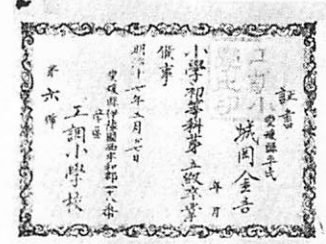 証書
愛媛縣平民
城岡金吾
年 月
小學初等科第五級卒業
候事
明治十七年三月 日
愛媛縣伊豫國西宇和郡 番
學區
工調小學校
第六號